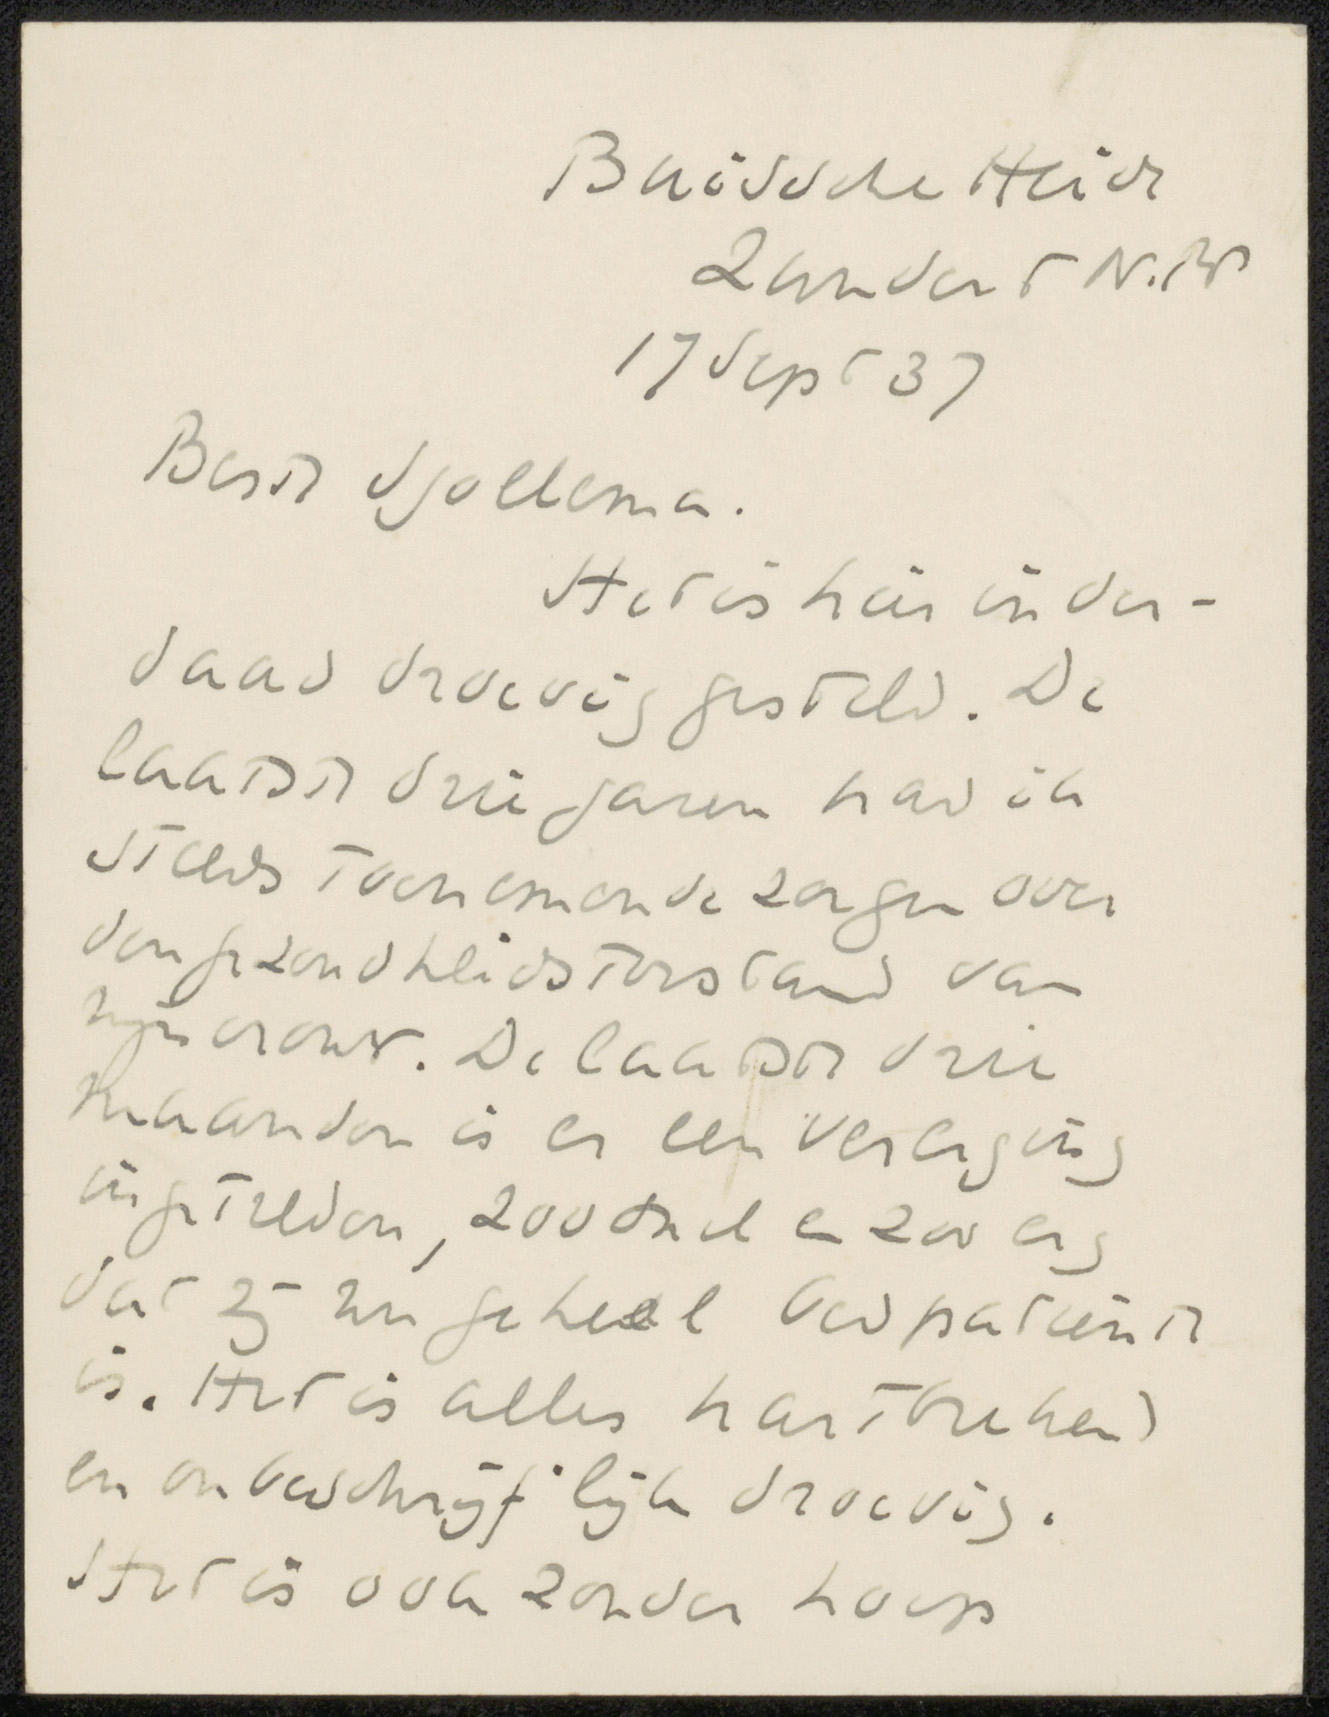 Buissche Heide
Zundert N.B.
17 Sept 37
Beste Sjollema.
Het is hier inder-
daad droevig gesteld. De
laatste drie jaren had ik
steeds toenemende zorgen over
den gezondheidstoestand van
mijn vrouw. De laatste drie
maanden is er een verergring
ingetreden, zoo snel en zoo erg
dat zij nu geheel bedpatiënte
is. Het is alles hartbrekend
en onbeschrijflijk droevig.
Het is ook zonder hoop